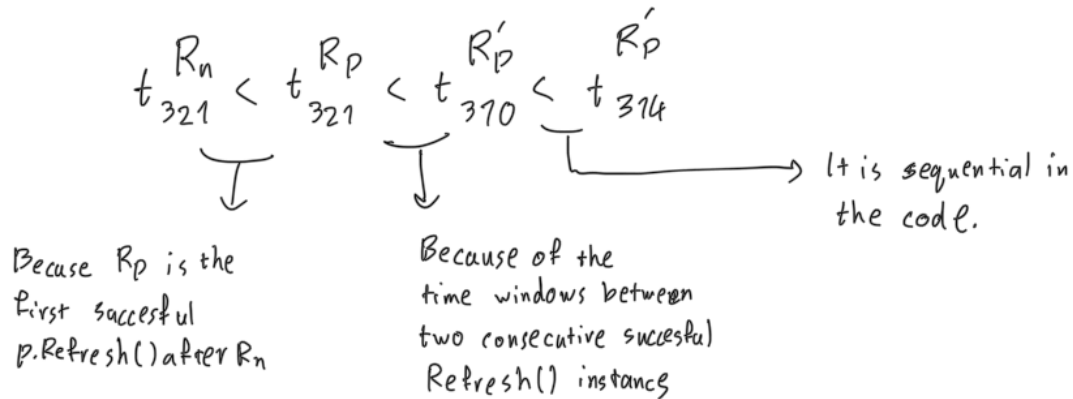 t₃₂₁^Rn < t₃₂₁^Rp < t₃₁₀^R′p < t₃₁₄^R′p
It is sequential in
the code.
Becuse Rp is the
first saccesful
p.Refresh() after Rn
Because of the
time windows between
two consecutive succesful
Refresh() instances